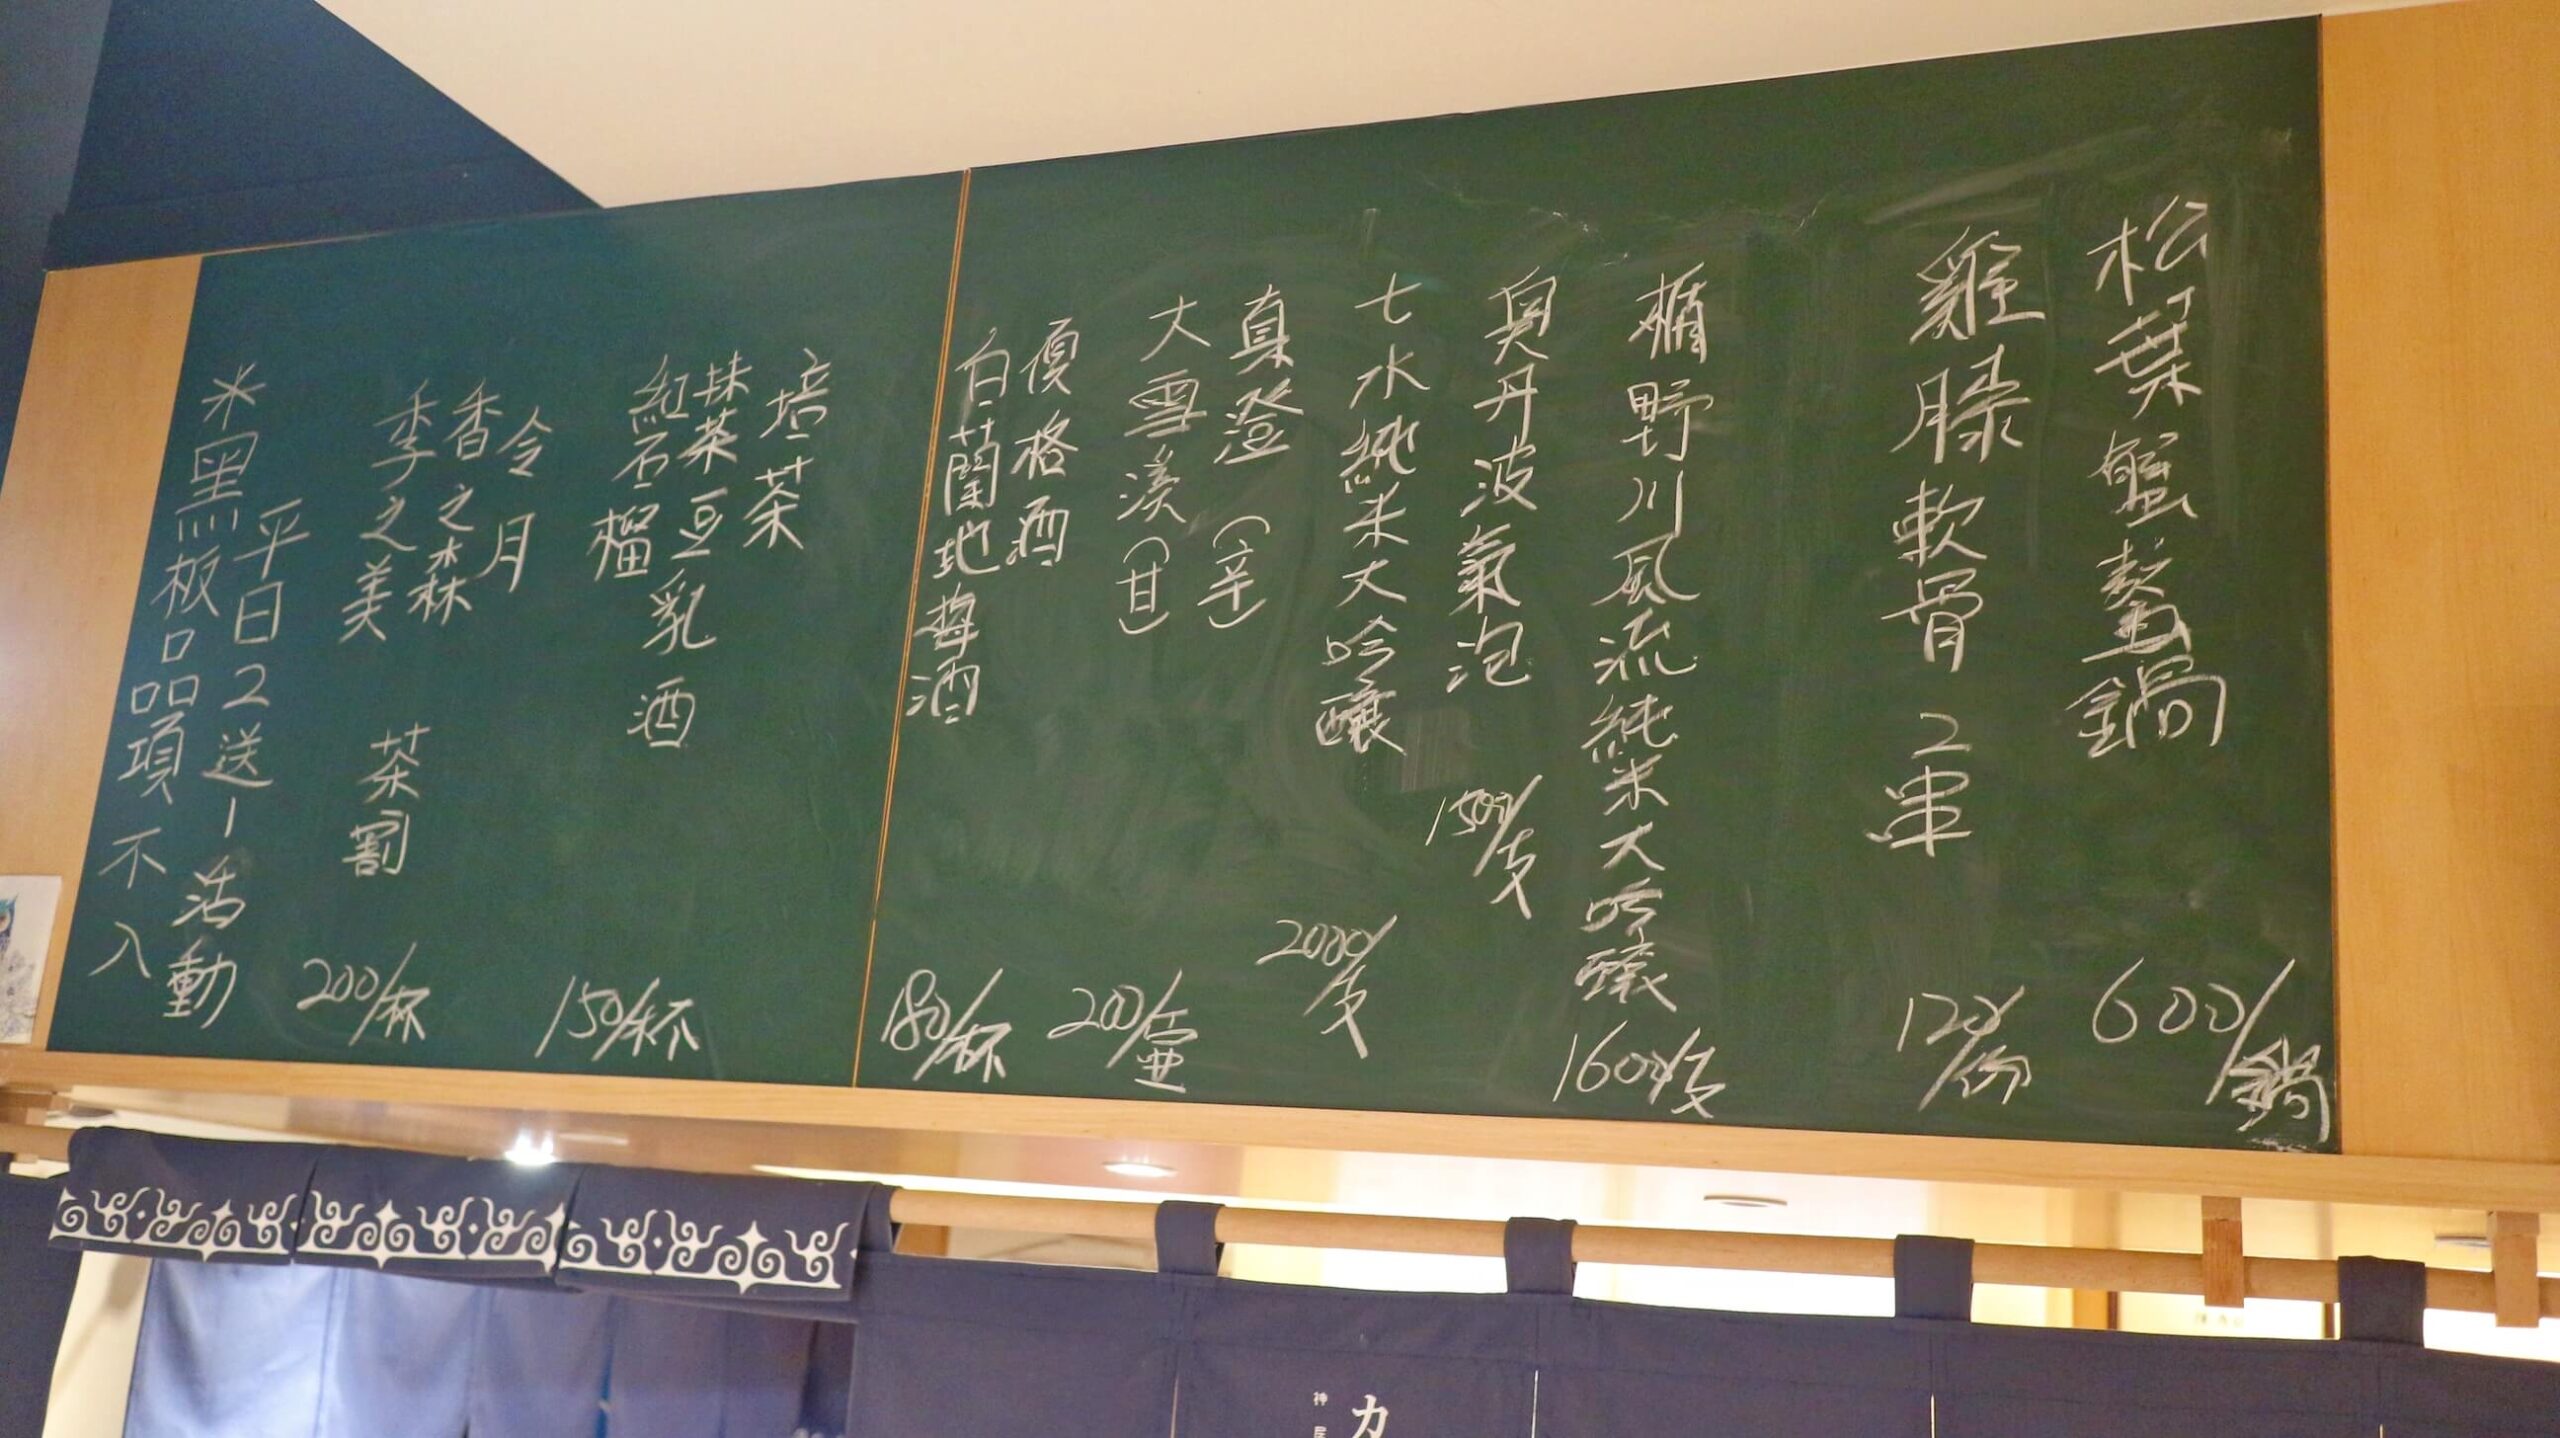 松葉蟹螯鍋 600/鍋
雞膝軟骨 2串 120/份
楯野川風流純米大吟釀 1600/支
奥丹波氣泡 1500/支
七水純米大吟釀 2000/支
真澄(辛)
大雪溪(甘) 200/壷
優格酒
白蘭地梅酒 180/杯
培茶
抹茶豆乳酒
紅石榴
150/杯
令月
香之森
季之美 茶割 200/杯
平日2送1活動
※黑板品項不入
力
神